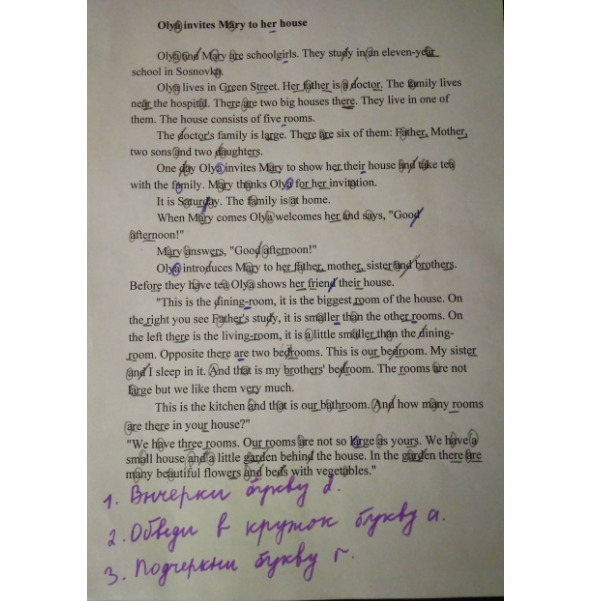 Olya invites Mary to her house
Olya and Mary are schoolgirls. They study in an eleven-year
school in Sosnovka.
Olya lives in Green Street. Her father is a doctor. The family lives
near the hospital. There are two big houses there. They live in one of
them. The house consists of five rooms.
The doctor's family is large. There are six of them: Father, Mother,
two sons and two daughters.
One day Olya invites Mary to show her their house and take tea
with the family. Mary thanks Olya for her invitation.
It is Saturday. The family is at home.
When Mary comes Olya welcomes her and says, "Good
afternoon!"
Mary answers, "Good afternoon!"
Olya introduces Mary to her father, mother, sister and brothers.
Before they have tea Olya shows her friend their house.
"This is the dining-room, it is the biggest room of the house. On
the right you see Father's study, it is smaller than the other rooms. On
the left there is the living-room, it is a little smaller than the dining-
room. Opposite there are two bedrooms. This is our bedroom. My sister
and I sleep in it. And that is my brothers' bedroom. The rooms are not
large but we like them very much.
This is the kitchen and that is our bathroom. And how many rooms
are there in your house?"
"We have three rooms. Our rooms are not so large as yours. We have a
small house and a little garden behind the house. In the garden there are
many beautiful flowers and beds with vegetables."
1. Вычерки букву d.
2. Обведи в кружок букву a.
3. Подчеркни букву r.